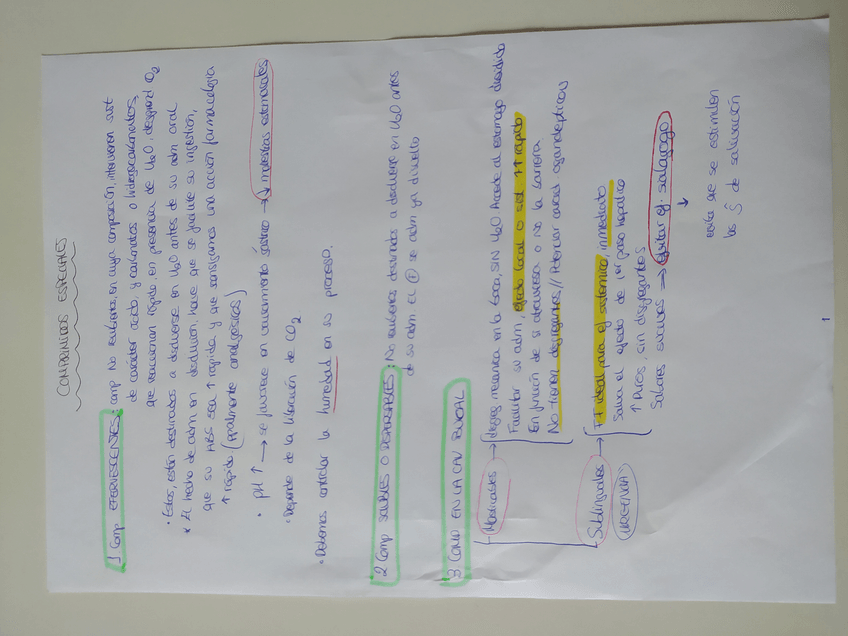 COMPRIMIDOS ESPECIALES
1 Comp EFERVESCENTES: comp No recubiertos, en cuya composición, intervienen sust
de carácter ácido, y carbonatos o hidrogenocarbonatos,
que reaccionan rápido en presencia de H2O desprend O2
· Estos, están destinados a disolverse en H2O antes de su adm oral
* El hecho de adm en disolución, hace que se facilite su ingestión,
que su ABS sea ↑ rápida y que consigamos una acción farmacológica
↑ rápida (normalmente analgésicos)
· pH ↑ → se favorece en vaciamiento gástrico → ↓ molestias estomacales
· Depende de la liberación de CO2
· Debemos controlar la humedad en su proceso.
2 Comp SOLUBLES O DISPERSABLES: No recubiertos destinados a disolverse en H2O antes
de su adm. El P se adm ya disuelto
3 COMP EN LA CAV BUCAL
Masticables → disgreg mecanica en la boca, SIN H2O Accede al estomago disuelto
Facilitar su adm, efecto local o sist ↑↑ rápido
En función de si atraviesa o no la barrera
No tienen disgregantes // Potenciar caract organolepticas
Sublinguales → FF ideal para ef sistemico, inmediato
URGENCIA
Salva el efecto de 1er paso hepático
↑ PA'os, sin disgregantes
Sabores suaves → Evitar ef. sialagogo
↓
evita que se estimulen
las S de salivación
1